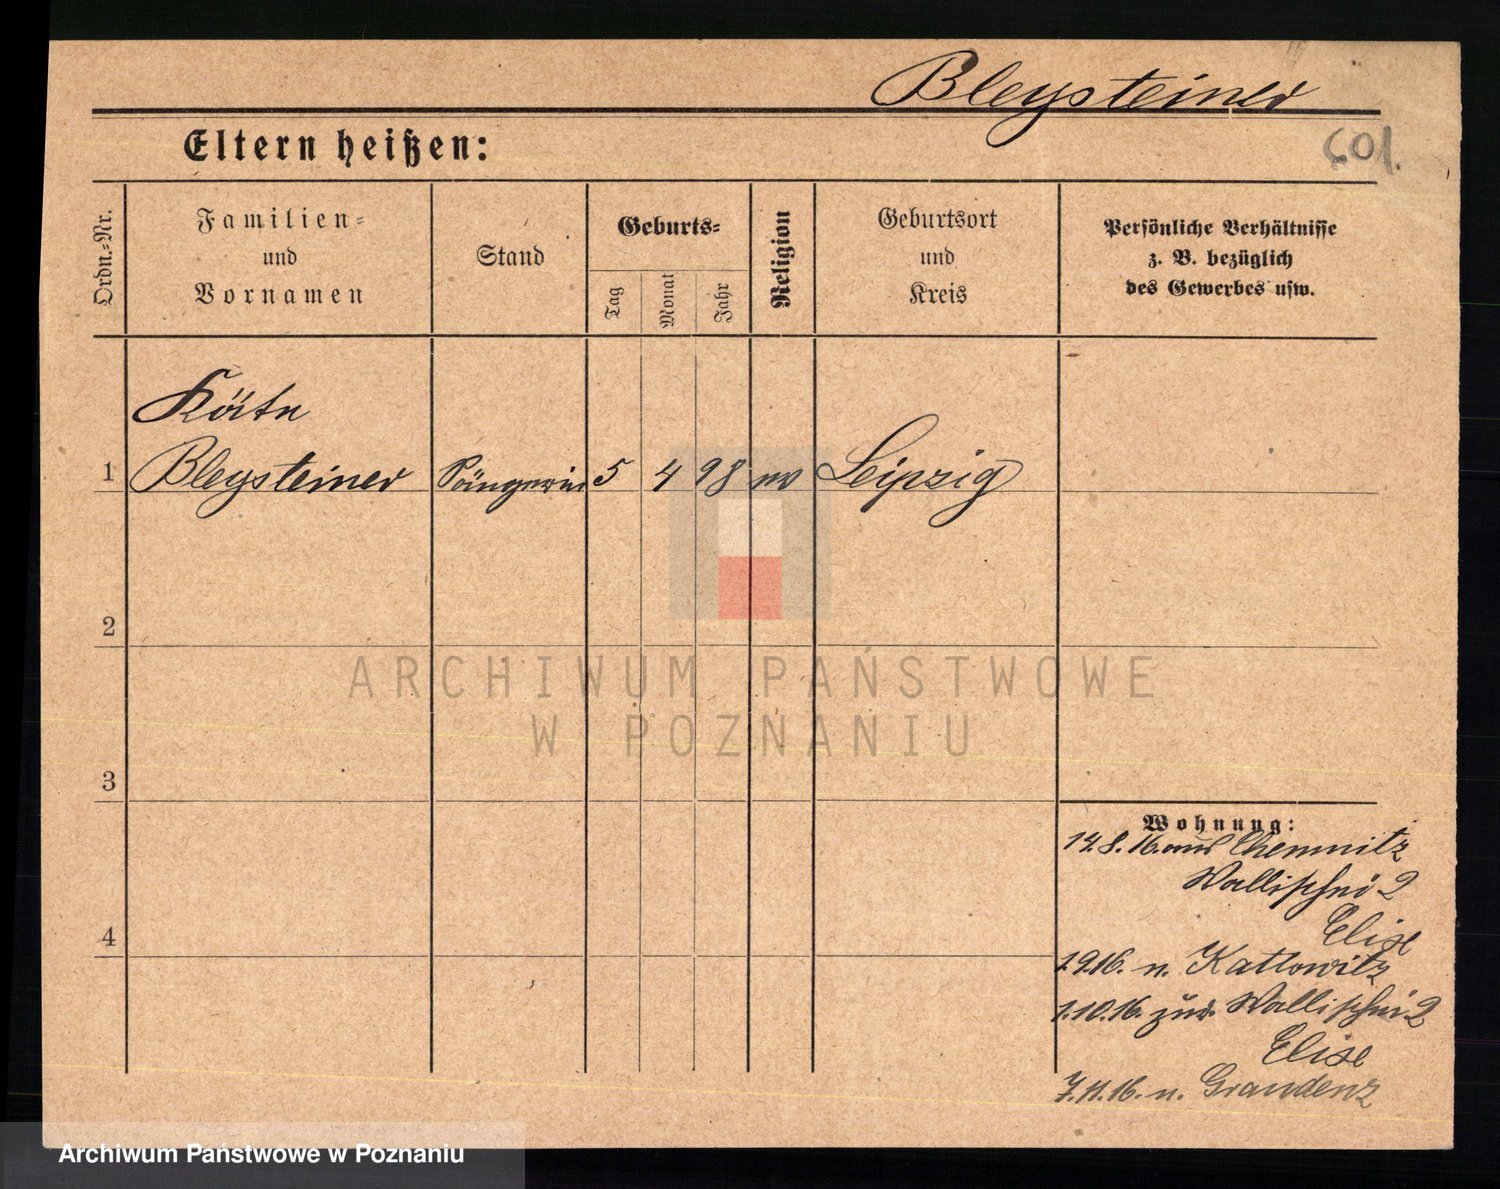 Bleysteiner
601.
Eltern heißen:
Ordn.-Nr.
Familien-
und
Vornamen
Stand
Geburts-
Tag
Monat
Jahr
Religion
Geburtsort
und
Kreis
Persönliche Verhältnisse
z. B. bezüglich
des Gewerbes usw.
Käte
1 Bleysteiner Sängerin 5 4 98 ev Leipzig
2
3
4
Wohnung:
14.8.16. aus Chemnitz
Wallischei 2
Elise
1.9.16. n. Kattowitz
1.10.16. zur. Wallischei 2
Elise
7.11.16. n. Graudenz
ARCHIWUM PAŃSTWOWE
W POZNANIU
Archiwum Państwowe w Poznaniu